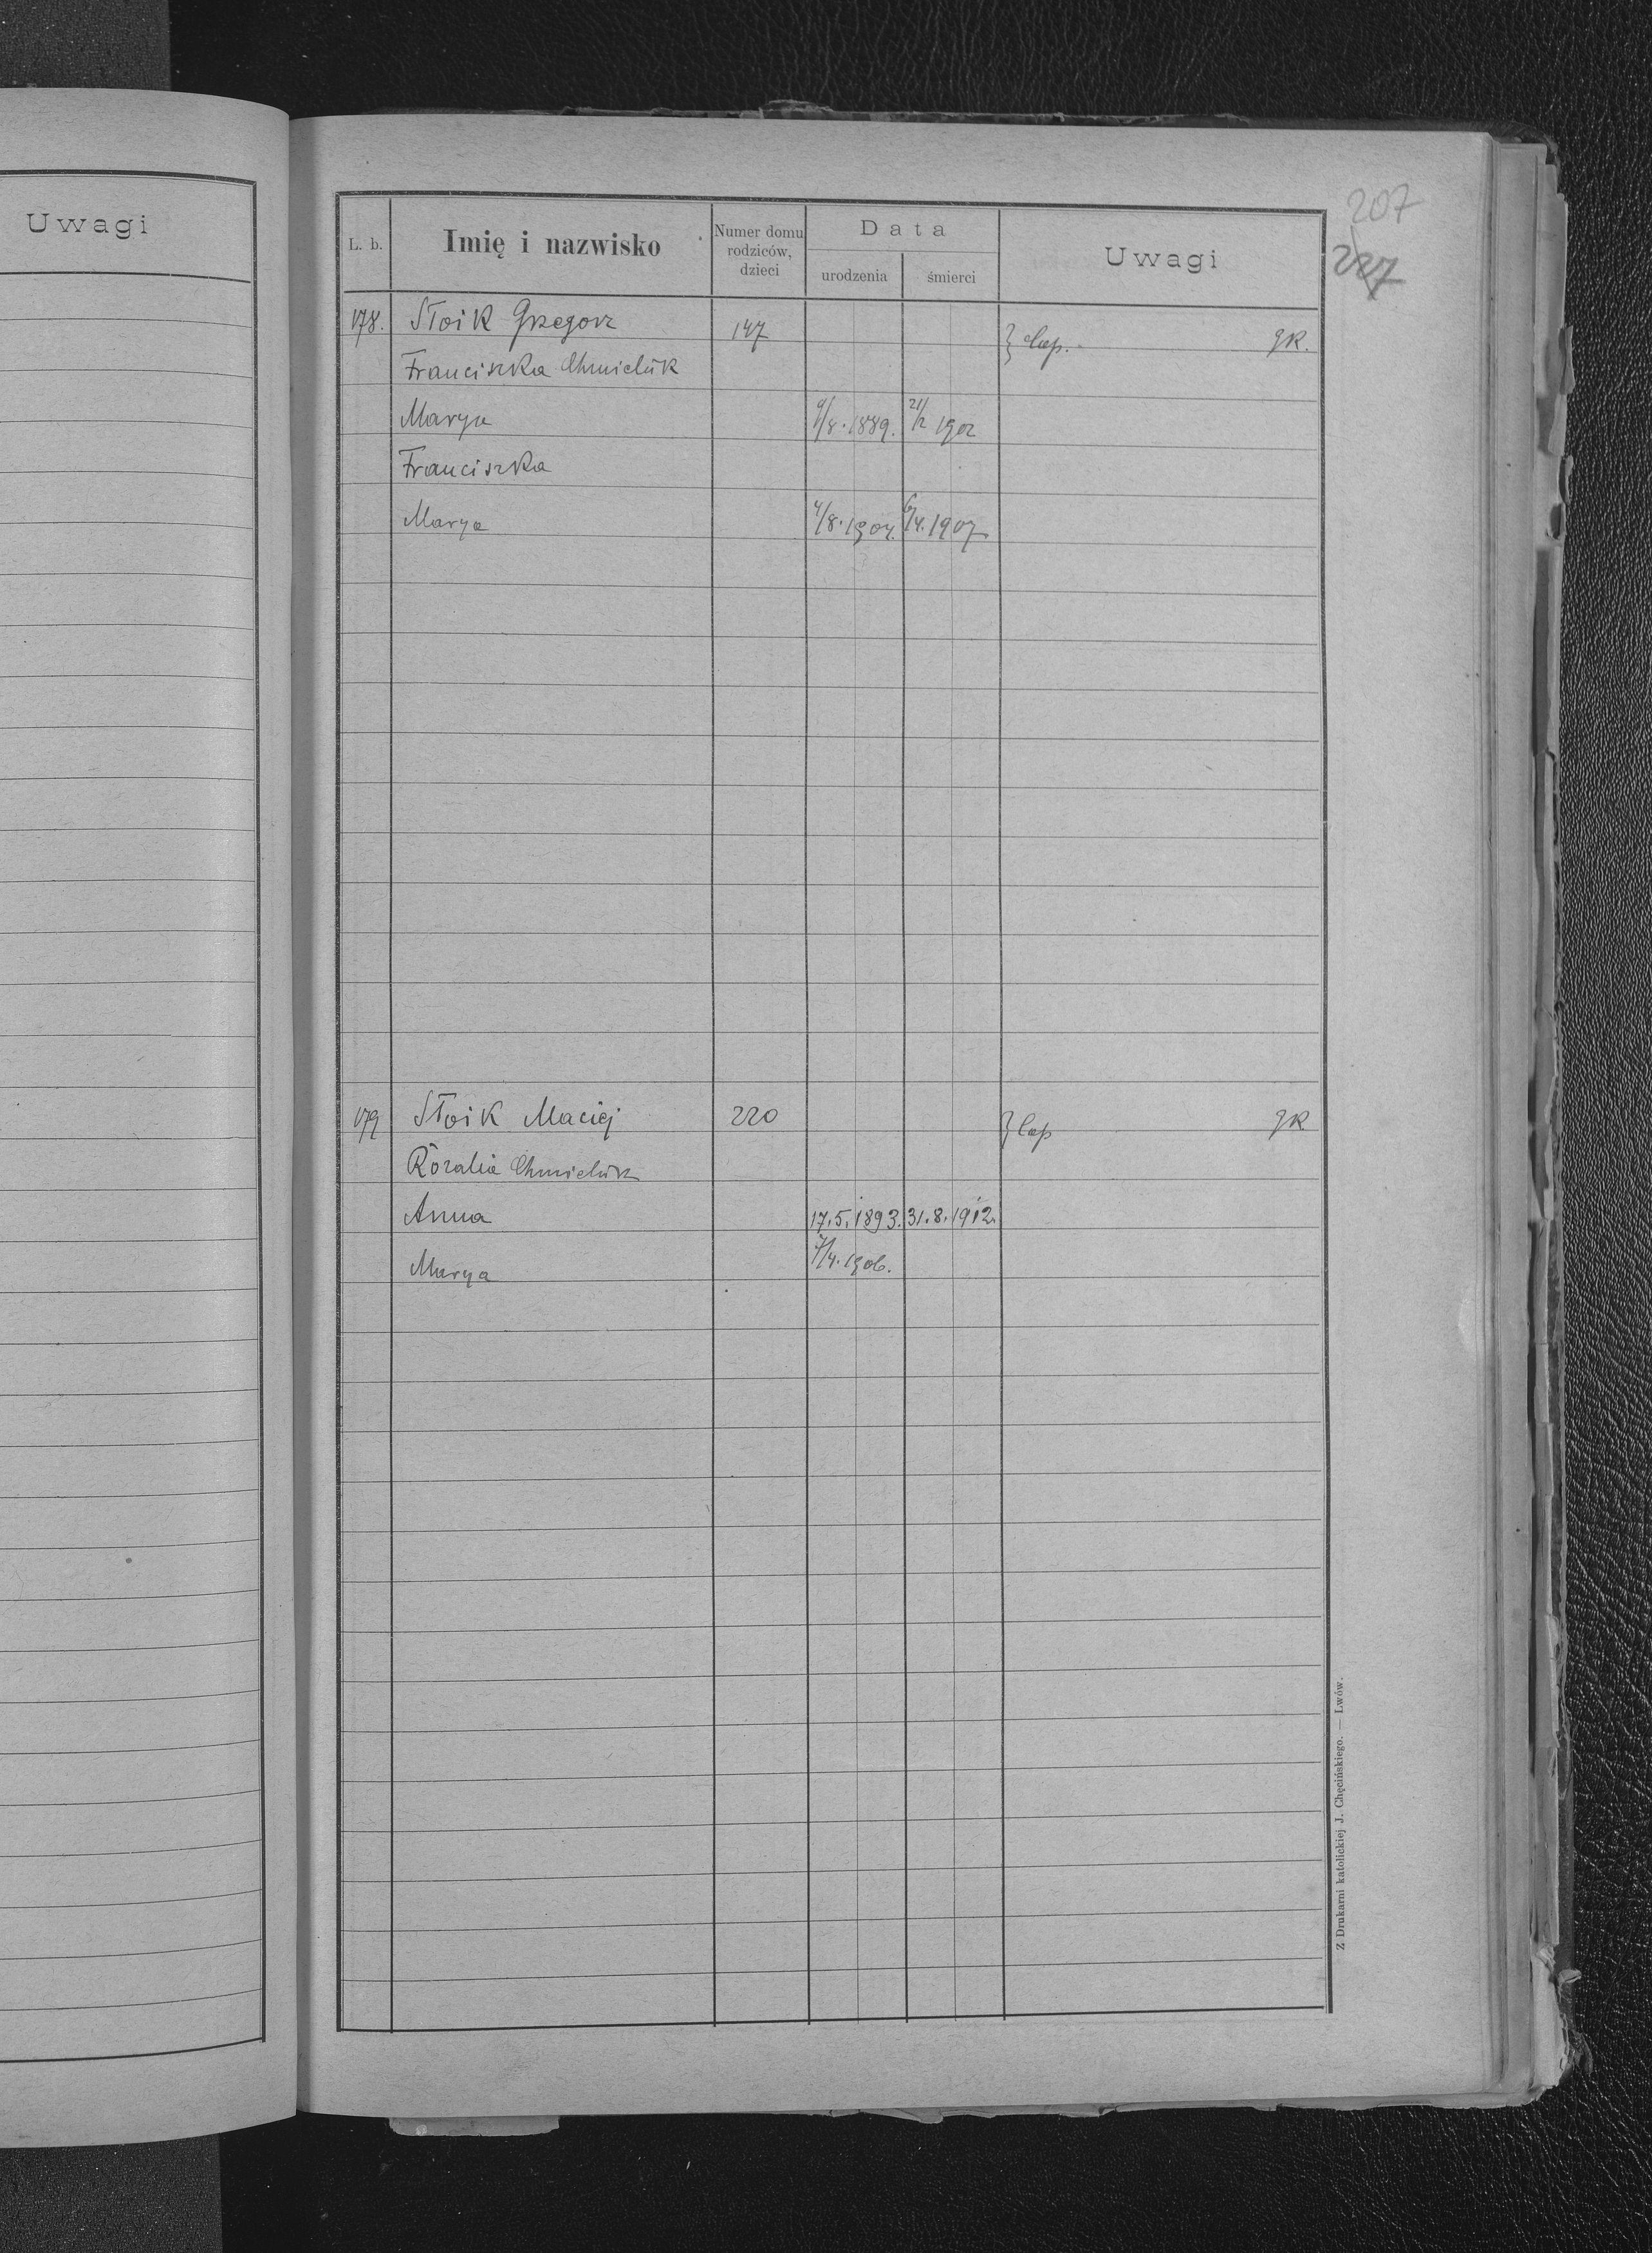 Uwagi
207
227
L. b. Imię i nazwisko Numer domu rodziców, dzieci Data urodzenia śmierci Uwagi
178. Słoik Grzegorz 147 } Cap. gR.
Franciszka Chmieluk
Marya 9/8. 1889. 21/2 1902
Franciszka
Marya 4/8. 1904. 6/4. 1907
179 Słoik Maciej 220 } Cap gR
Rozalia Chmieluk
Anna 17.5.1893. 31.8.1912.
Marya 7/4. 1906.
Z Drukarni katolickiej J. Chęcińskiego. — Lwów.